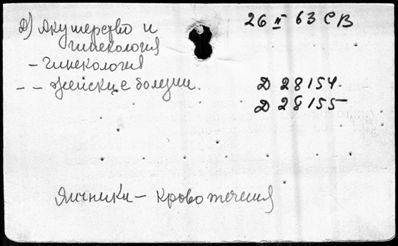 2) Акушерство и
гинекология
- гинекология
- - женские болезни.
26 II 63 СВ
Д 28154.
Д 28155
Яичники - кровотечения